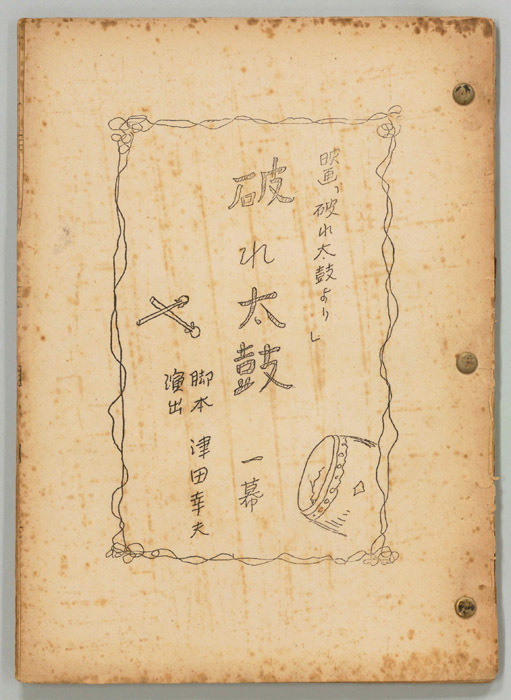 映画「破れ太鼓より」
破れ太鼓
一幕
脚本
演出
津田幸夫